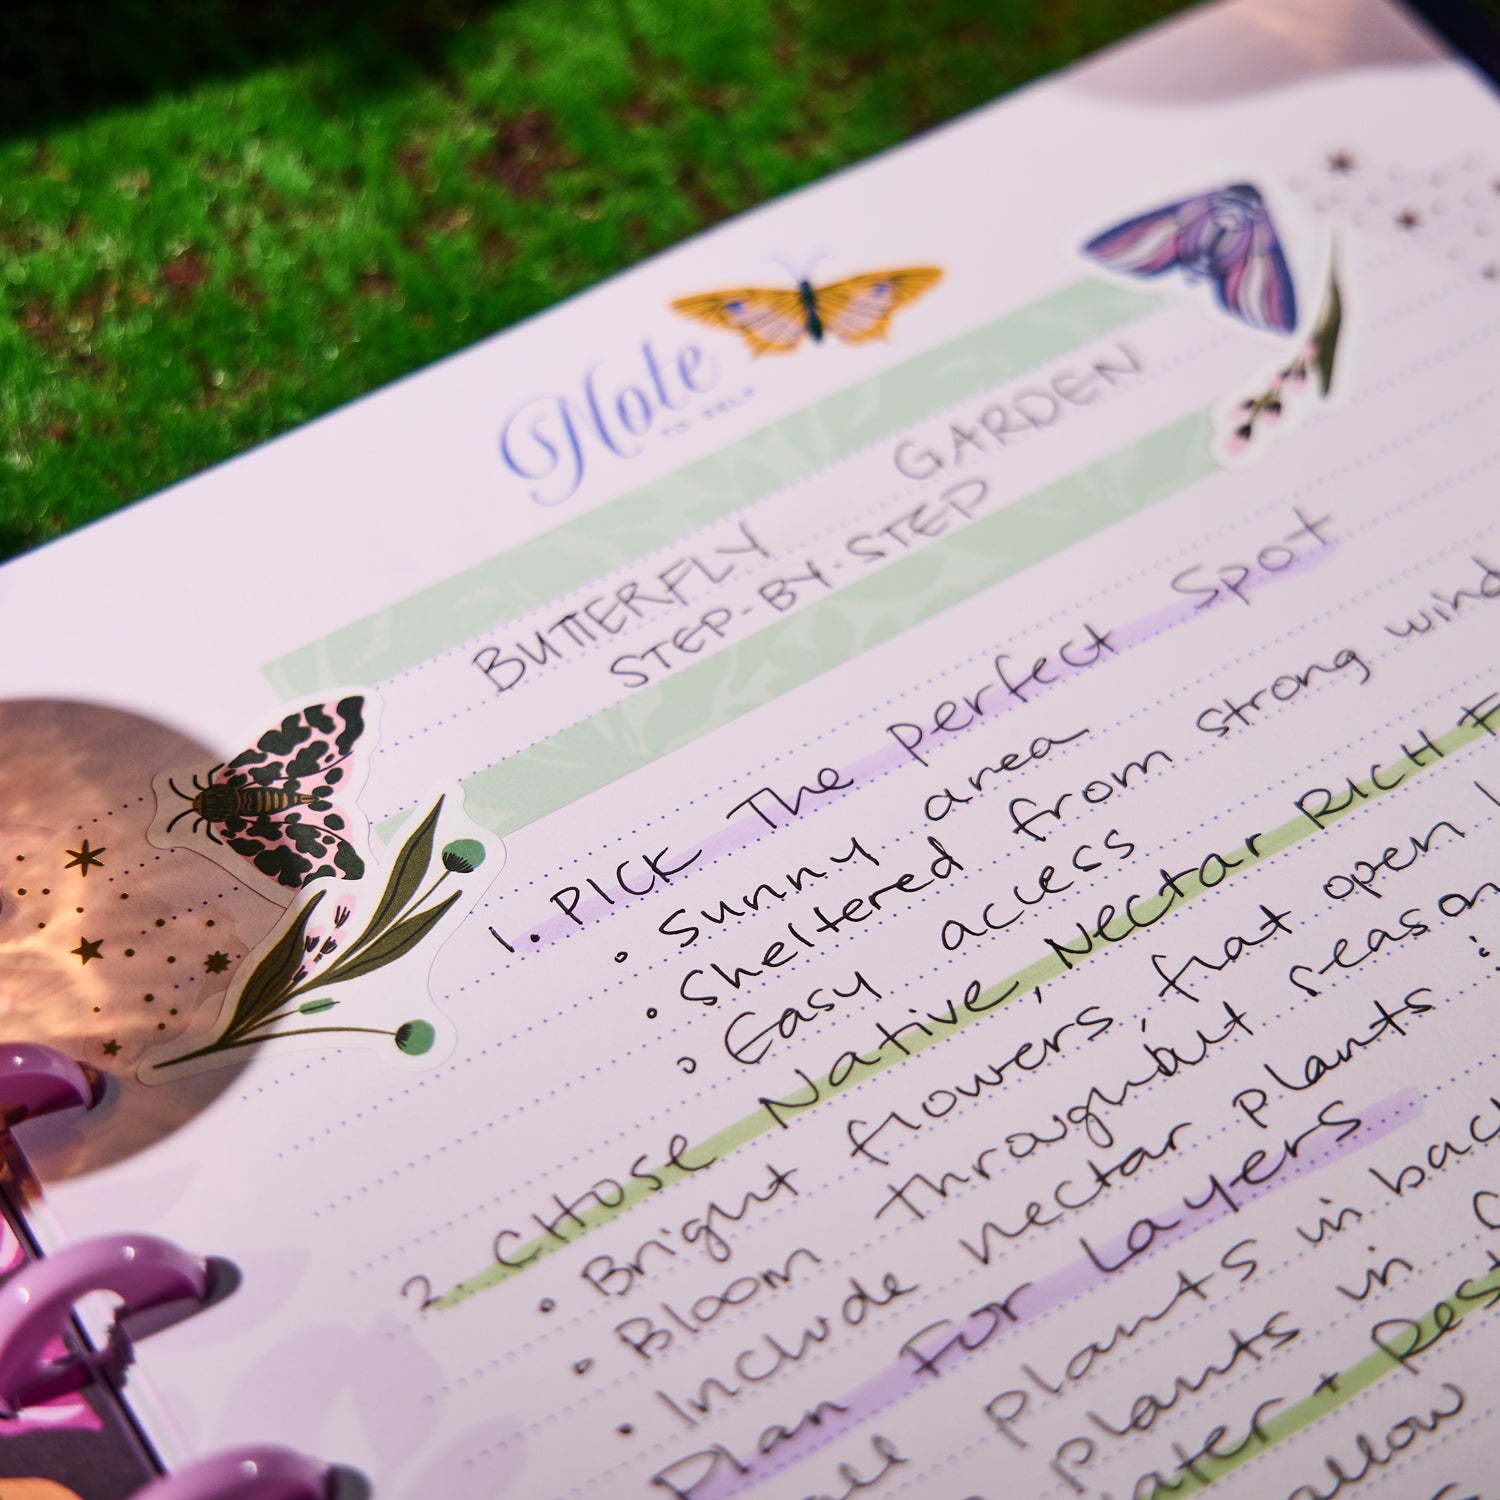 Note
TO SELF
BUTTERFLY GARDEN
STEP-BY-STEP
1. PICK The perfect Spot
• Sunny area
• Sheltered from strong wind
• Easy access
2. CHOSE Native, Nectar RICH
• Bright flowers, that open
• Bloom throughout season
• Include nectar plants
Plan For Layers
plants in
plants in
+